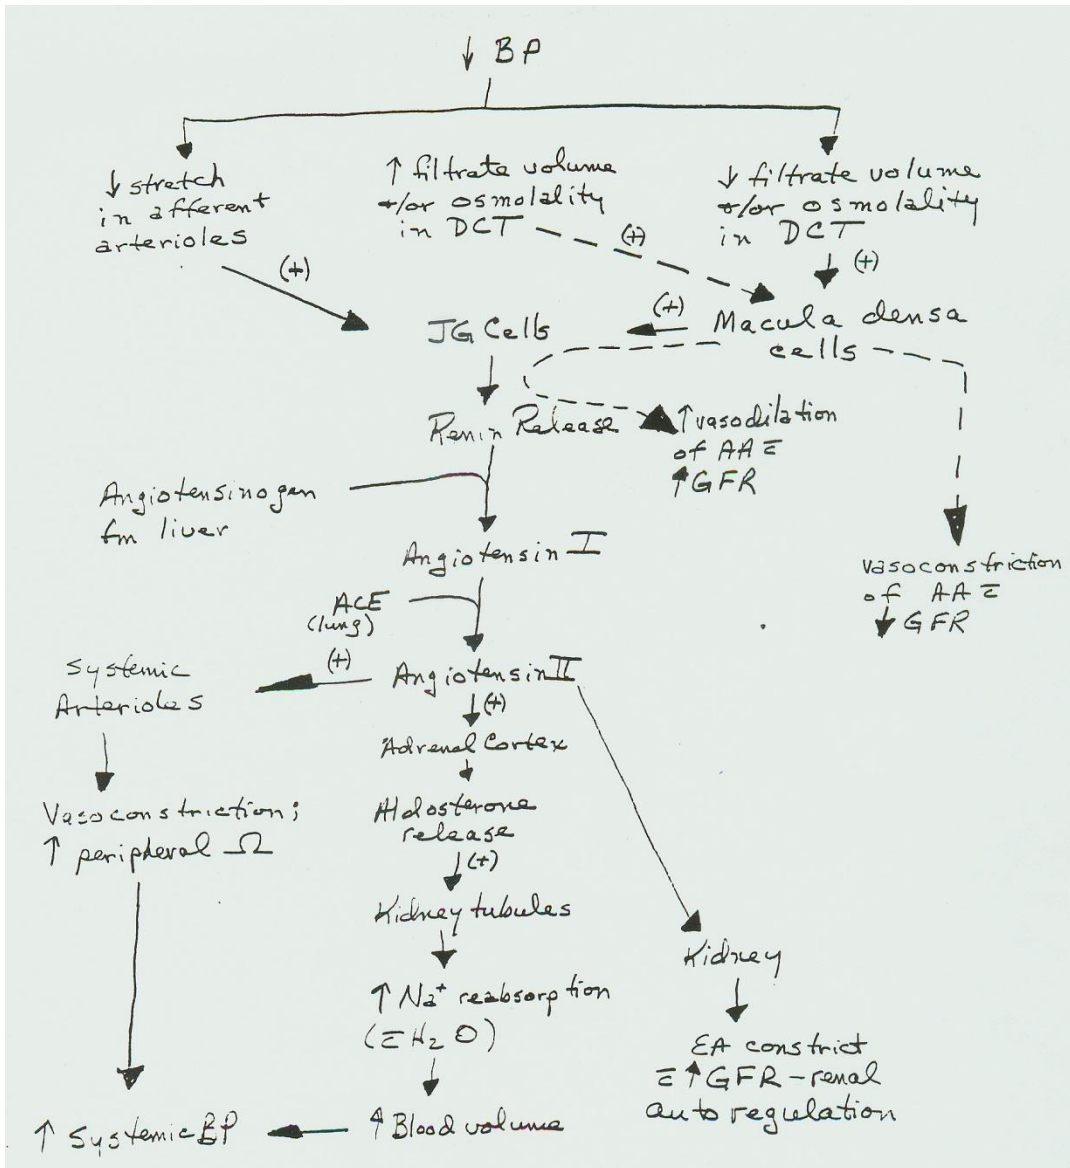 ↓ BP
↓ stretch
in afferent
arterioles
↑ filtrate volume
+/or osmolality
in DCT
↓ filtrate volume
+/or osmolality
in DCT
(+)
(+)
(+)
(+)
JG Cells
Macula densa
cells
Renin Release
↑ vasodilation
of AA c̄
↑ GFR
Angiotensinogen
fm liver
Angiotensin I
Vasoconstriction
of AA c̄
↓ GFR
ACE
(lung)
(+)
Systemic
Arterioles
Angiotensin II
(+)
Adrenal Cortex
Aldosterone
release
(+)
Vasoconstriction;
↑ peripheral Ω
Kidney tubules
Kidney
↑ Na⁺ reabsorption
(c̄ H₂O)
EA constrict
c̄ ↑ GFR - renal
autoregulation
↑ Systemic BP
↑ Blood volume